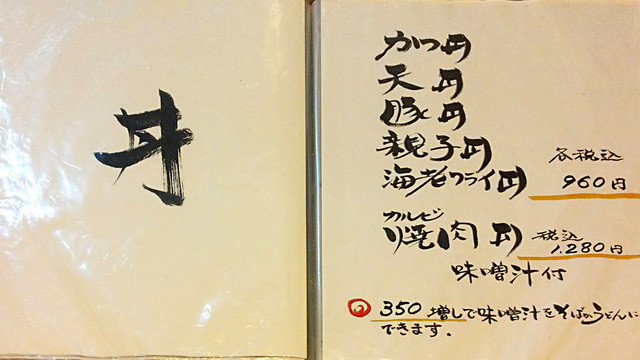 丼
かつ丼
天丼
豚丼
親子丼
海老フライ丼
各税込
960円
カルビ
焼肉丼
税込
1,280円
味噌汁付
◎350増しで味噌汁をそばorうどんに
できます。